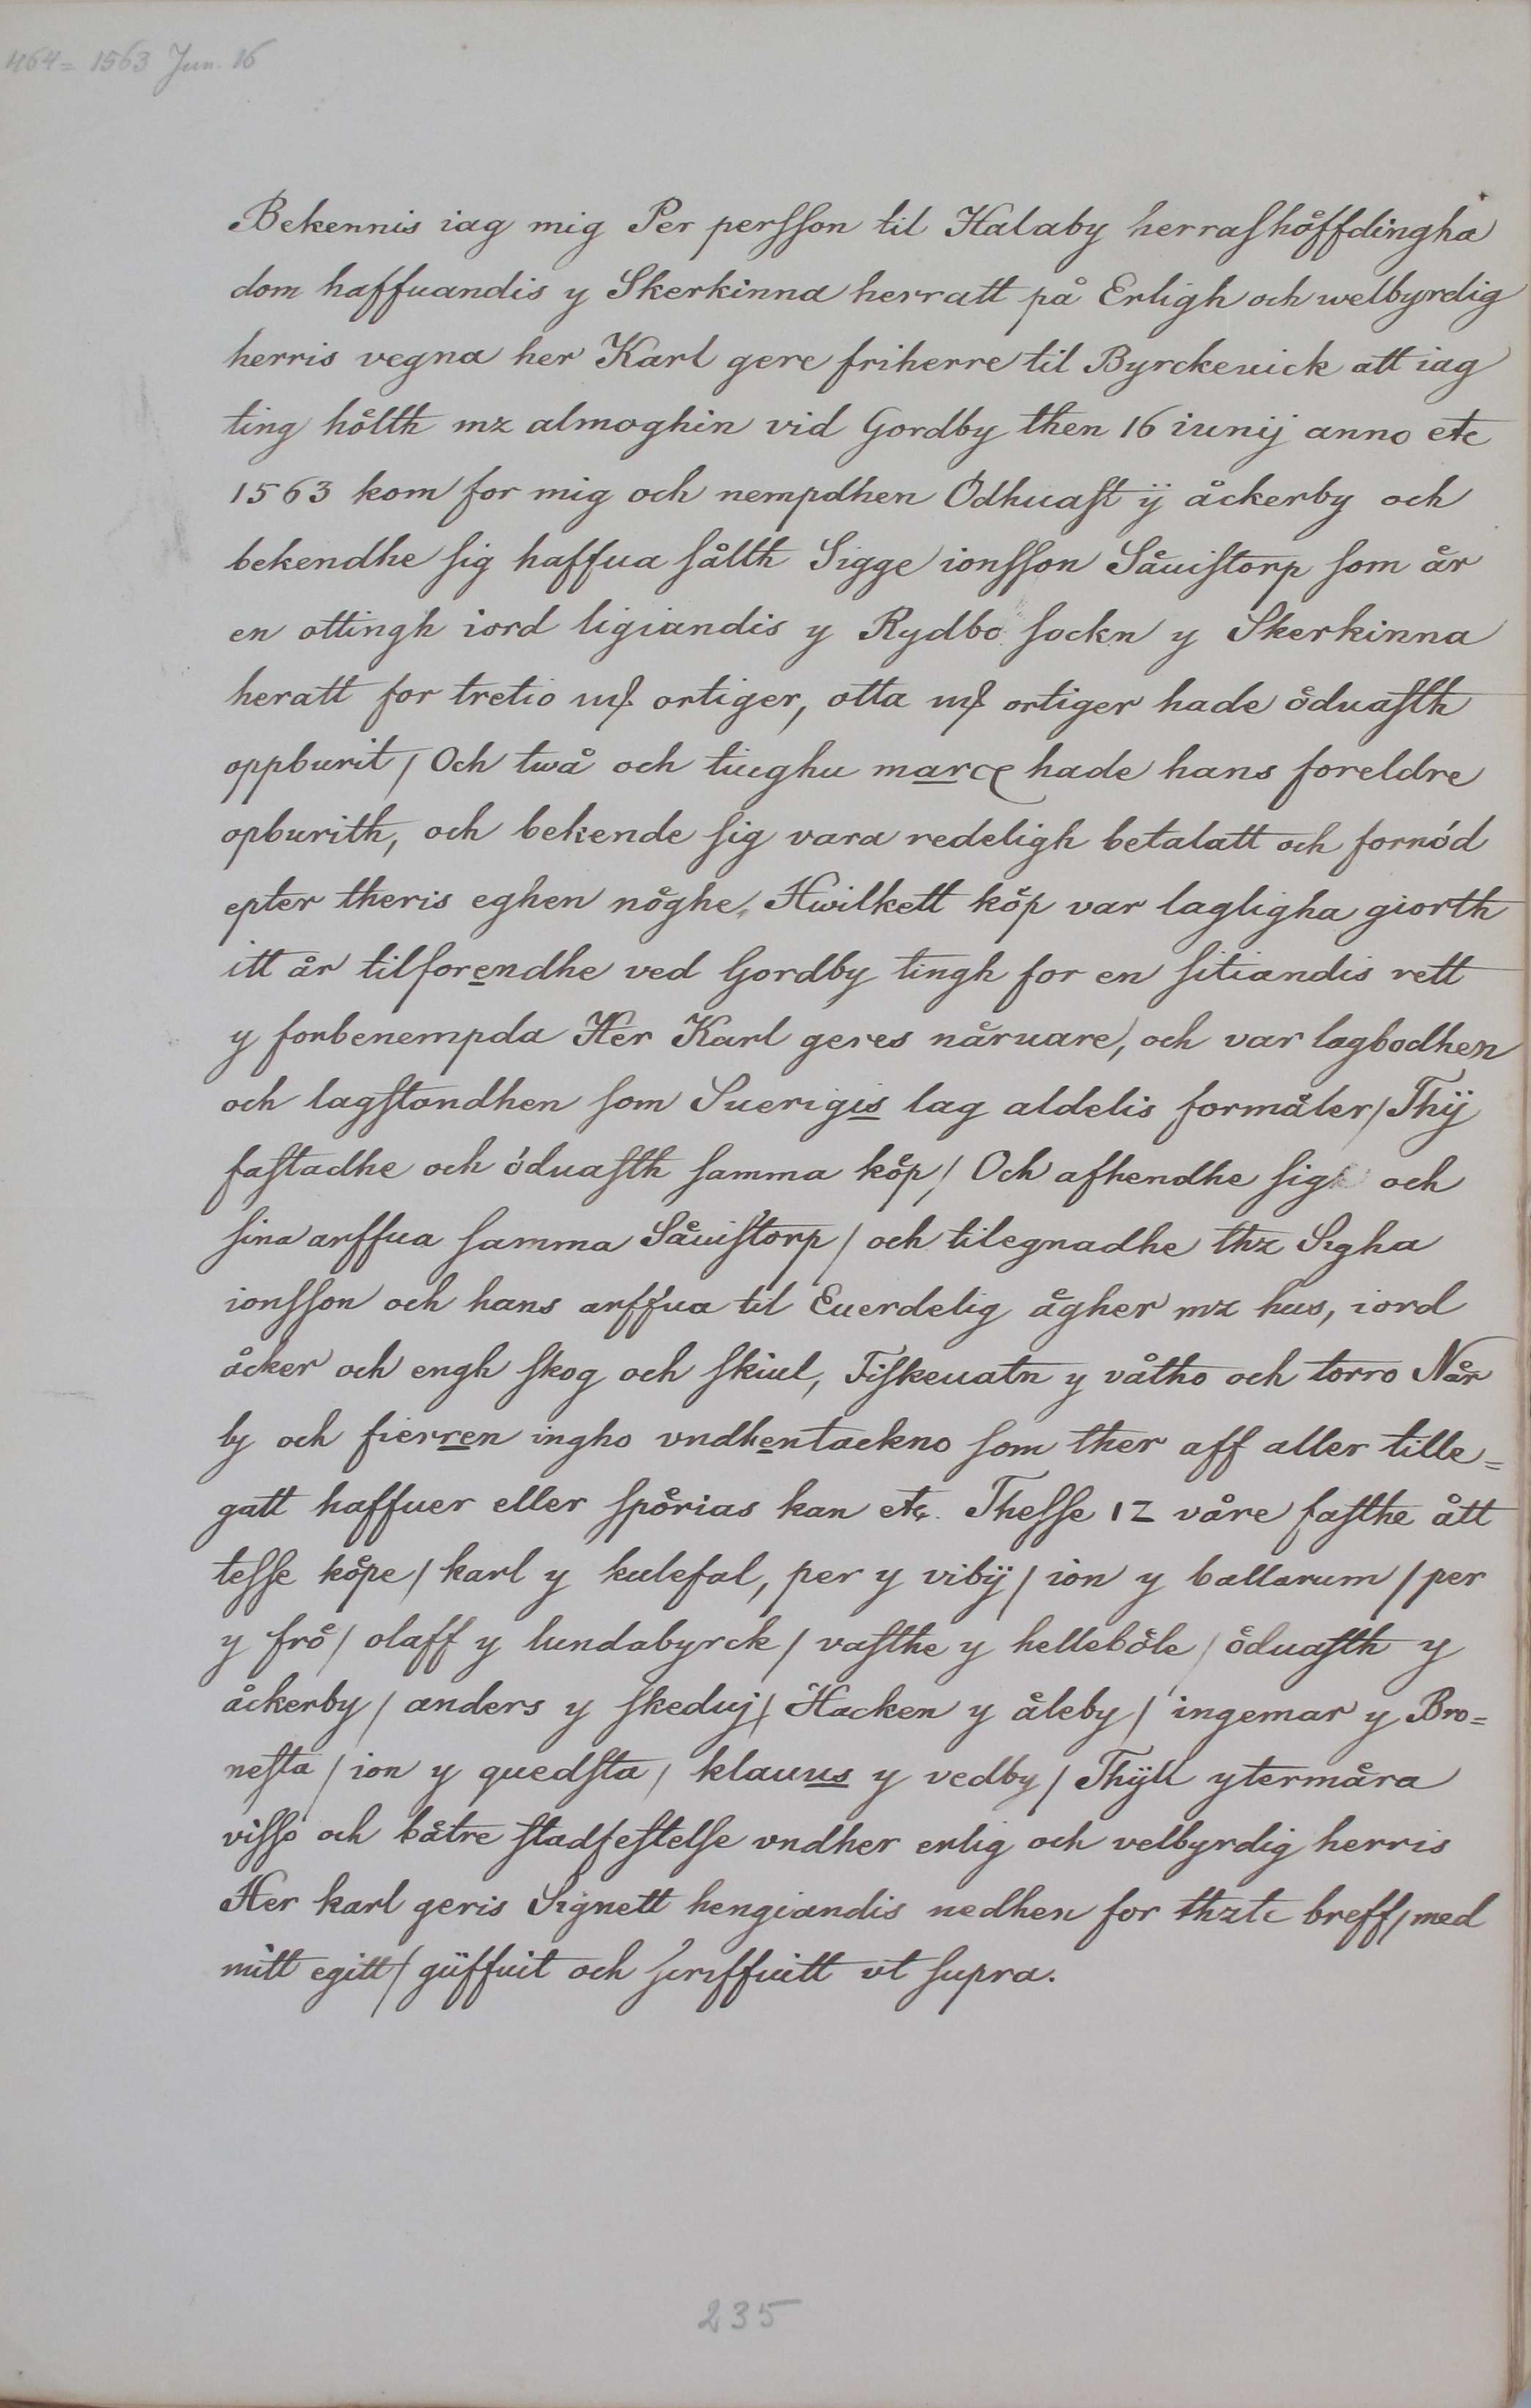 464 = 1563 Jun. 16
Bekennis iag mig Per persson til Halaby herrashåffdingha
dom haffuandis y Skerkinna herratt på Erligh och welbyrdig
herris vegna her Karl gere friherre til Byrckeuick att iag
ting hålth mz almoghin vid Gordby then 16 iunij anno etc
1563 kom for mig och nempdhen Ödhuast ÿ åckerby och
bekendhe sig haffua sålth Sigge ionsson Såuistorp som år
en ottingh iord ligiandis y Rydbo sockn y Skerkinna
heratt for tretio mß ortiger, otta mß ortiger hade öduasth
oppburit / Och twå och tiughu marce hade hans foreldre
opburith, och bekende sig vara redeligh betalatt och fornöd
epter theris eghen nöghe, Hwilkett köp var lagligha giorth
itt år tilforendhe ved Gordby tingh for en sitiandis rett
y forbenempda Her Karl geres nåruare, och var lagbodhen
och lagstondhen som Suerigis lag aldelis formåler / Thÿ
fastadhe och öduasth samma köp / Och afhendhe sig och
sina arffua samma Såuistorp / och tilegnadhe thz Sigha
ionsson och hans arffua til Euerdelig ågher mz hus, iord
åcker och engh skog och skiul, Fiskeuatn y våtho och torro Når
by och fierren ingho vndhentackno som ther aff aller tille=
gatt haffuer eller spörias kan etc. Thesse 12 våre fasthe ått
tesse köpe / karl y kulefal, per y vibÿ / ion y ballarum / per
y frö / olaff y lundabyrck / vasthe y helleböle / öduasth y
åckerby / anders y skeduj / Hacken y åleby / ingemar y Bro=
nesta / ion y quedsta / klauus y vedby / Thÿll ytermåra
visso och båtre stadfestelse vndher erlig och velbyrdig herris
Her karl geris Signett hengiandis nedhen for thztc breff / med
mitt egitt / giiffuit och scriffuitt vt supra.
235